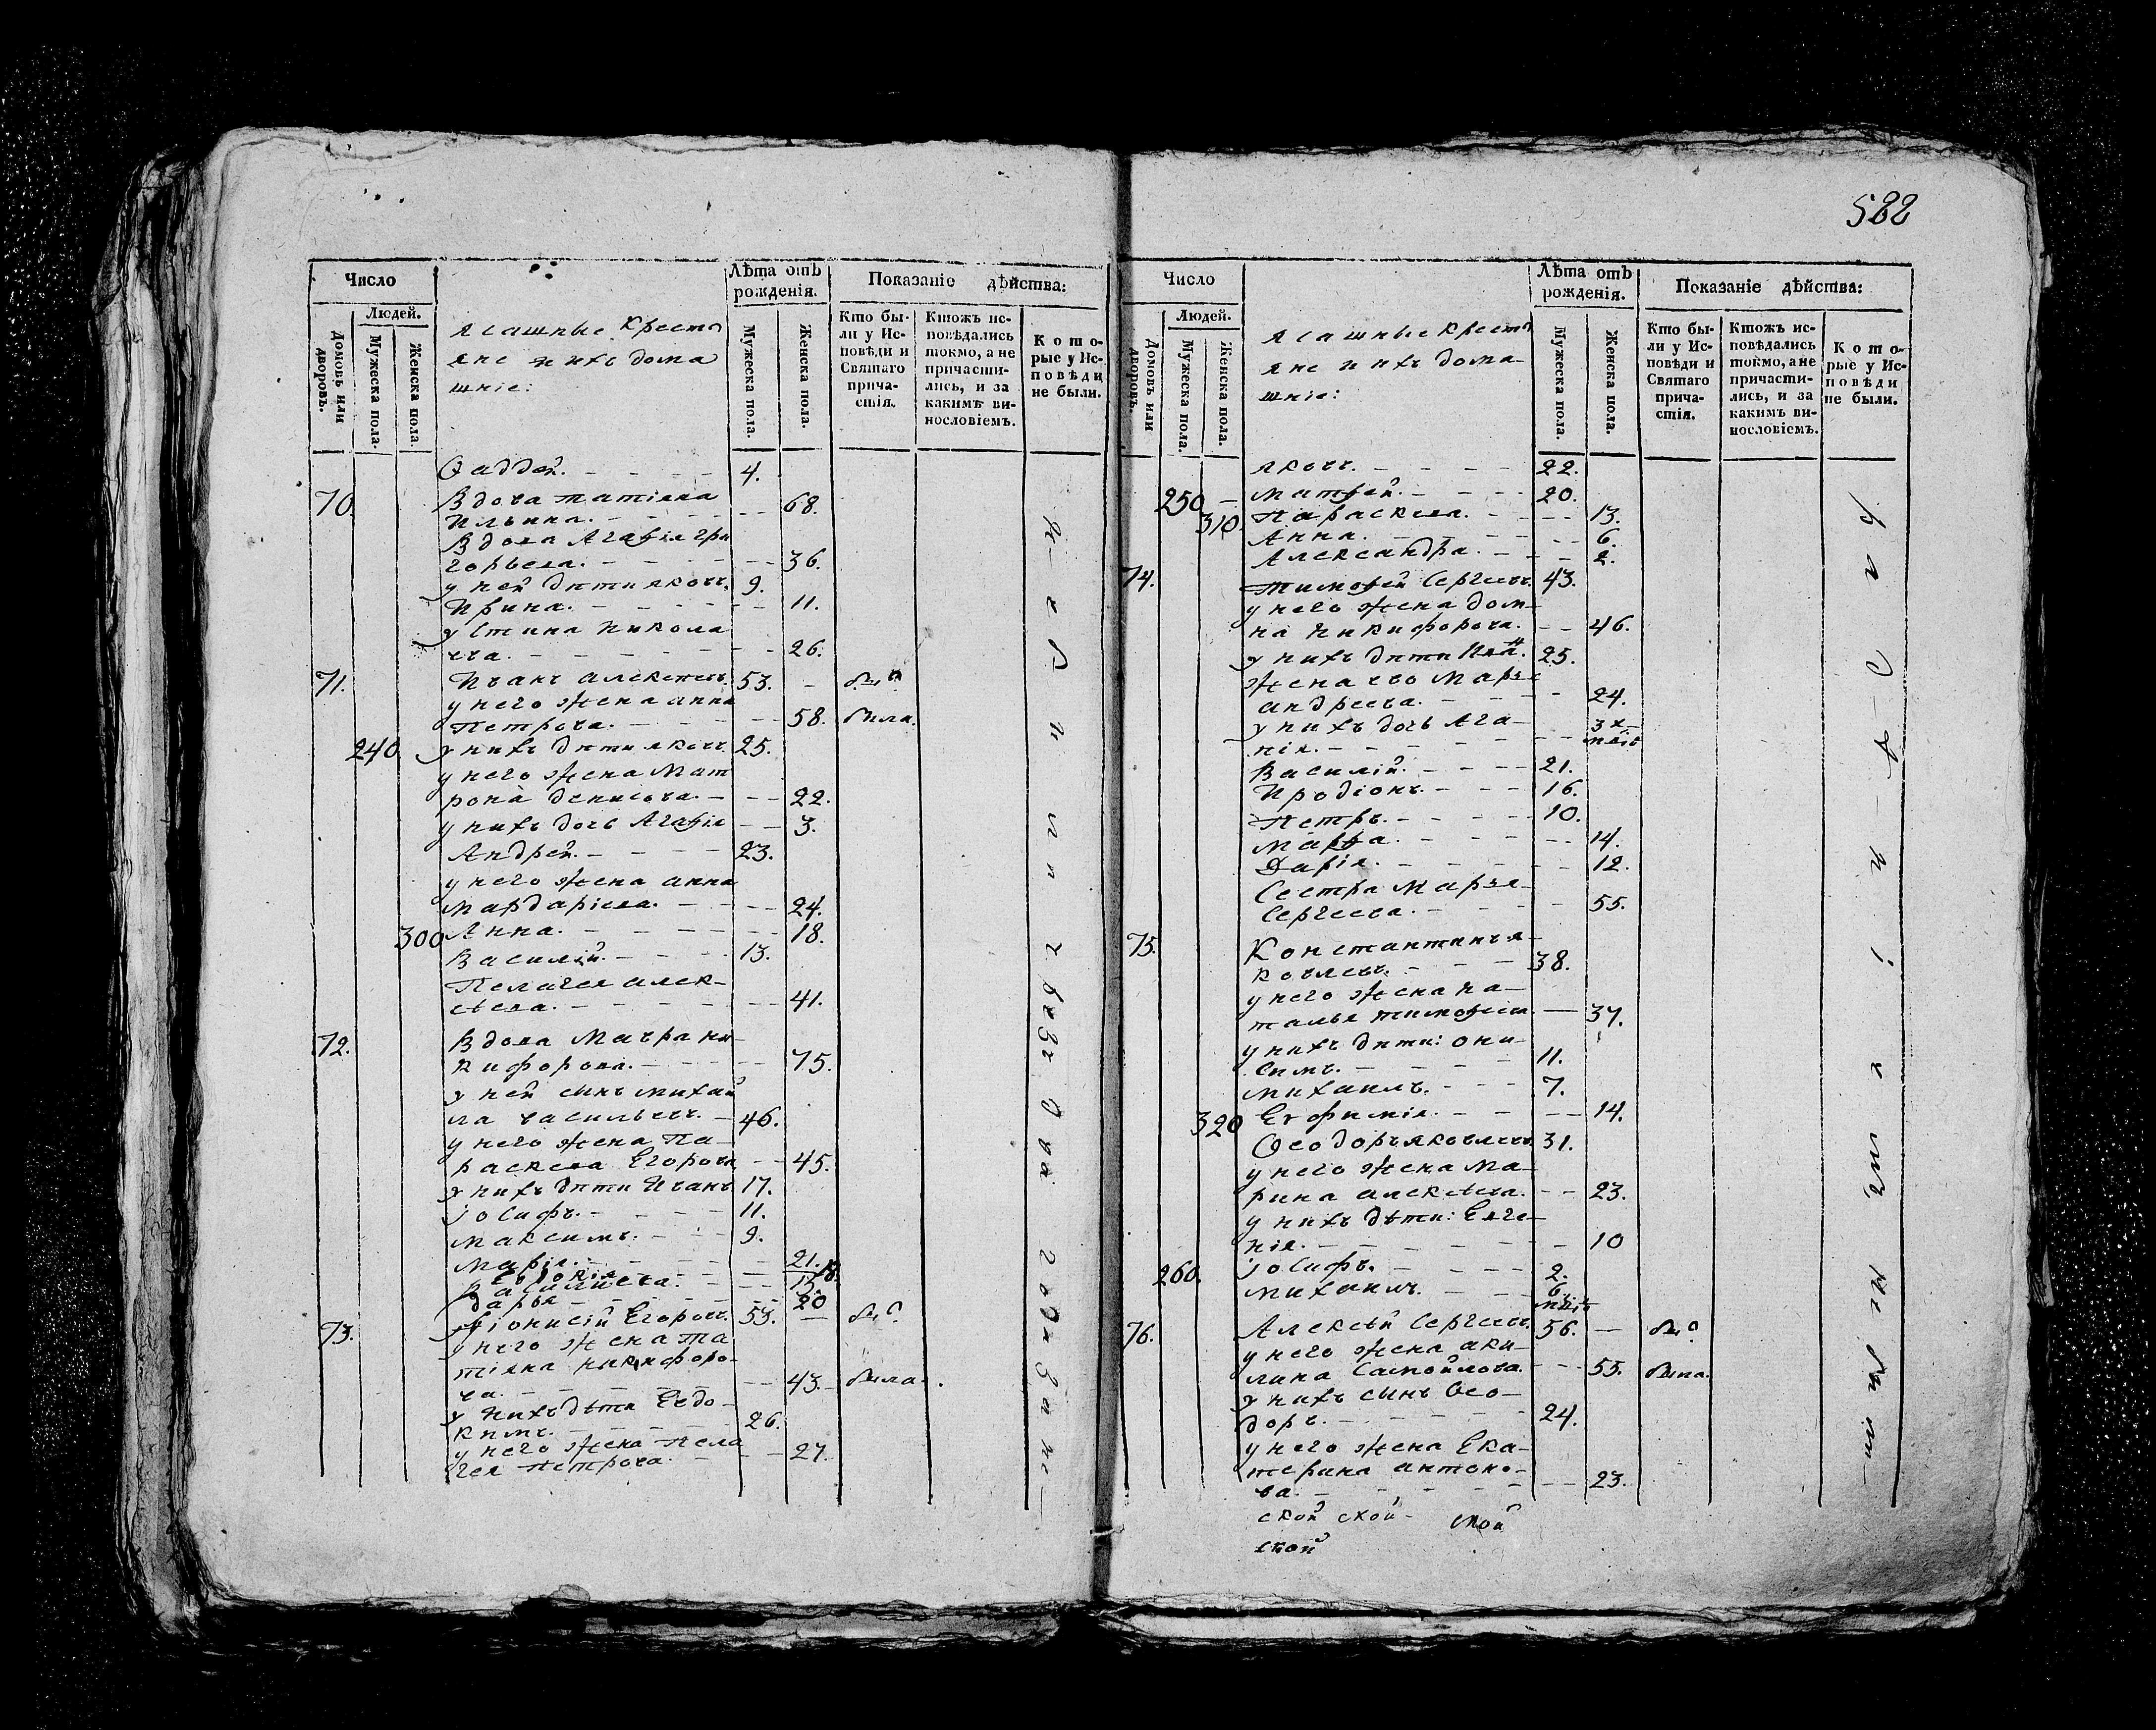 522
Число
Лѣта отъ рожденія.
Показаніе дѣйства:
Людей.
Домовъ или дворовъ.
Мужеска пола.
Женска пола.
Ясашные кресть
яне и ихъ дома
шніе:
Мужеска пола.
Женска пола.
Кто бы-
ли у Ис-
повѣди и
Святаго
прича-
стія.
Ктожъ ис-
повѣдались
токмо, а не
причасти-
лись, и за
какимъ ви-
нословіемъ.
Кото-
рые у Ис-
повѣди
не были.
Ѳаддей. 4.
70. Вдова татіяна
Ильина. 68.
Вдова Агафія гри
горьева. 36.
у ней дѣти яковъ. 9.
Ирина. 11.
устина Никола
ева. 26.
71. Иванъ алексеевъ. 53. былъ
у него жена анна
Петрова. 58. была.
240. у нихъ дѣти яковъ. 25.
у него жена Мат
рона денисова. 22.
у нихъ дочь Агафія 3.
Андрей. 23.
у него жена анна
мардаріева. 24.
300 Анна. 18.
Василій. 13.
Пелагея алек-
сѣева. 41.
72. Вдова Мавра ни-
кифорова. 75.
у ней сынъ михай
ла васильевъ. 46.
у него жена Па-
раскева Егорова 45.
у нихъ дѣти Иванъ 17.
іосифъ. 11.
максимъ. 9.
марія. 21.
Евдокія 18.
Василиса. 15.
дарья 20
73. Діонисій Егоровъ. 53. былъ
у него жена та
тіяна никифоро-
ва. 43. была.
у нихъ дѣти Евдо-
кимъ. 26.
у него жена пела
гея петрова. 27.
Число
Лѣта отъ рожденія.
Показаніе дѣйства:
Людей.
Домовъ или дворовъ.
Мужеска пола.
Женска пола.
Ясашные кресть
яне и ихъ дома-
шніе:
Мужеска пола.
Женска пола.
Кто бы-
ли у Ис-
повѣди и
Святаго
прича-
стія.
Ктожъ ис-
повѣдались
токмо, а не
причасти-
лись, и за
какимъ ви-
нословіемъ.
Кото-
рые у Ис-
повѣди
не были.
яковъ. 22.
250 матфей. 20.
310. Параскева. 13.
Анна. 6.
Александра. 2.
74. тимофей Сергеевъ. 43.
у него жена дом-
на Никифорова. 46.
у нихъ дѣти 25.
жена его Марѳа
андреева. 24.
у нихъ дочь Ага-
пія. 3х
Василій. 21.
Иродіонъ. 16.
Петръ. 10.
марфа. 14.
Дарія. 12.
Сестра Марѳа
Сергеева. 55.
75. Константинъ я-
ковлевъ. 38.
у него жена на-
талья тимофеева 37.
у нихъ дѣти: они-
симъ. 11.
михаилъ. 7.
320 Евфимія. 14.
Ѳеодоръ яковлевъ. 31.
у него жена ма-
рина алексѣева. 23.
у нихъ дѣти: Евге-
нія. 10
260. іосифъ. 2.
михаилъ. 6
76. Алексѣй Сергеевъ. 56. былъ
у него жена аку-
лина Самойлова. 55. была.
у нихъ сынъ Ѳео-
доръ. 24.
у него жена Ека-
терина антоно-
ва. 23.
ской ской ской
ской